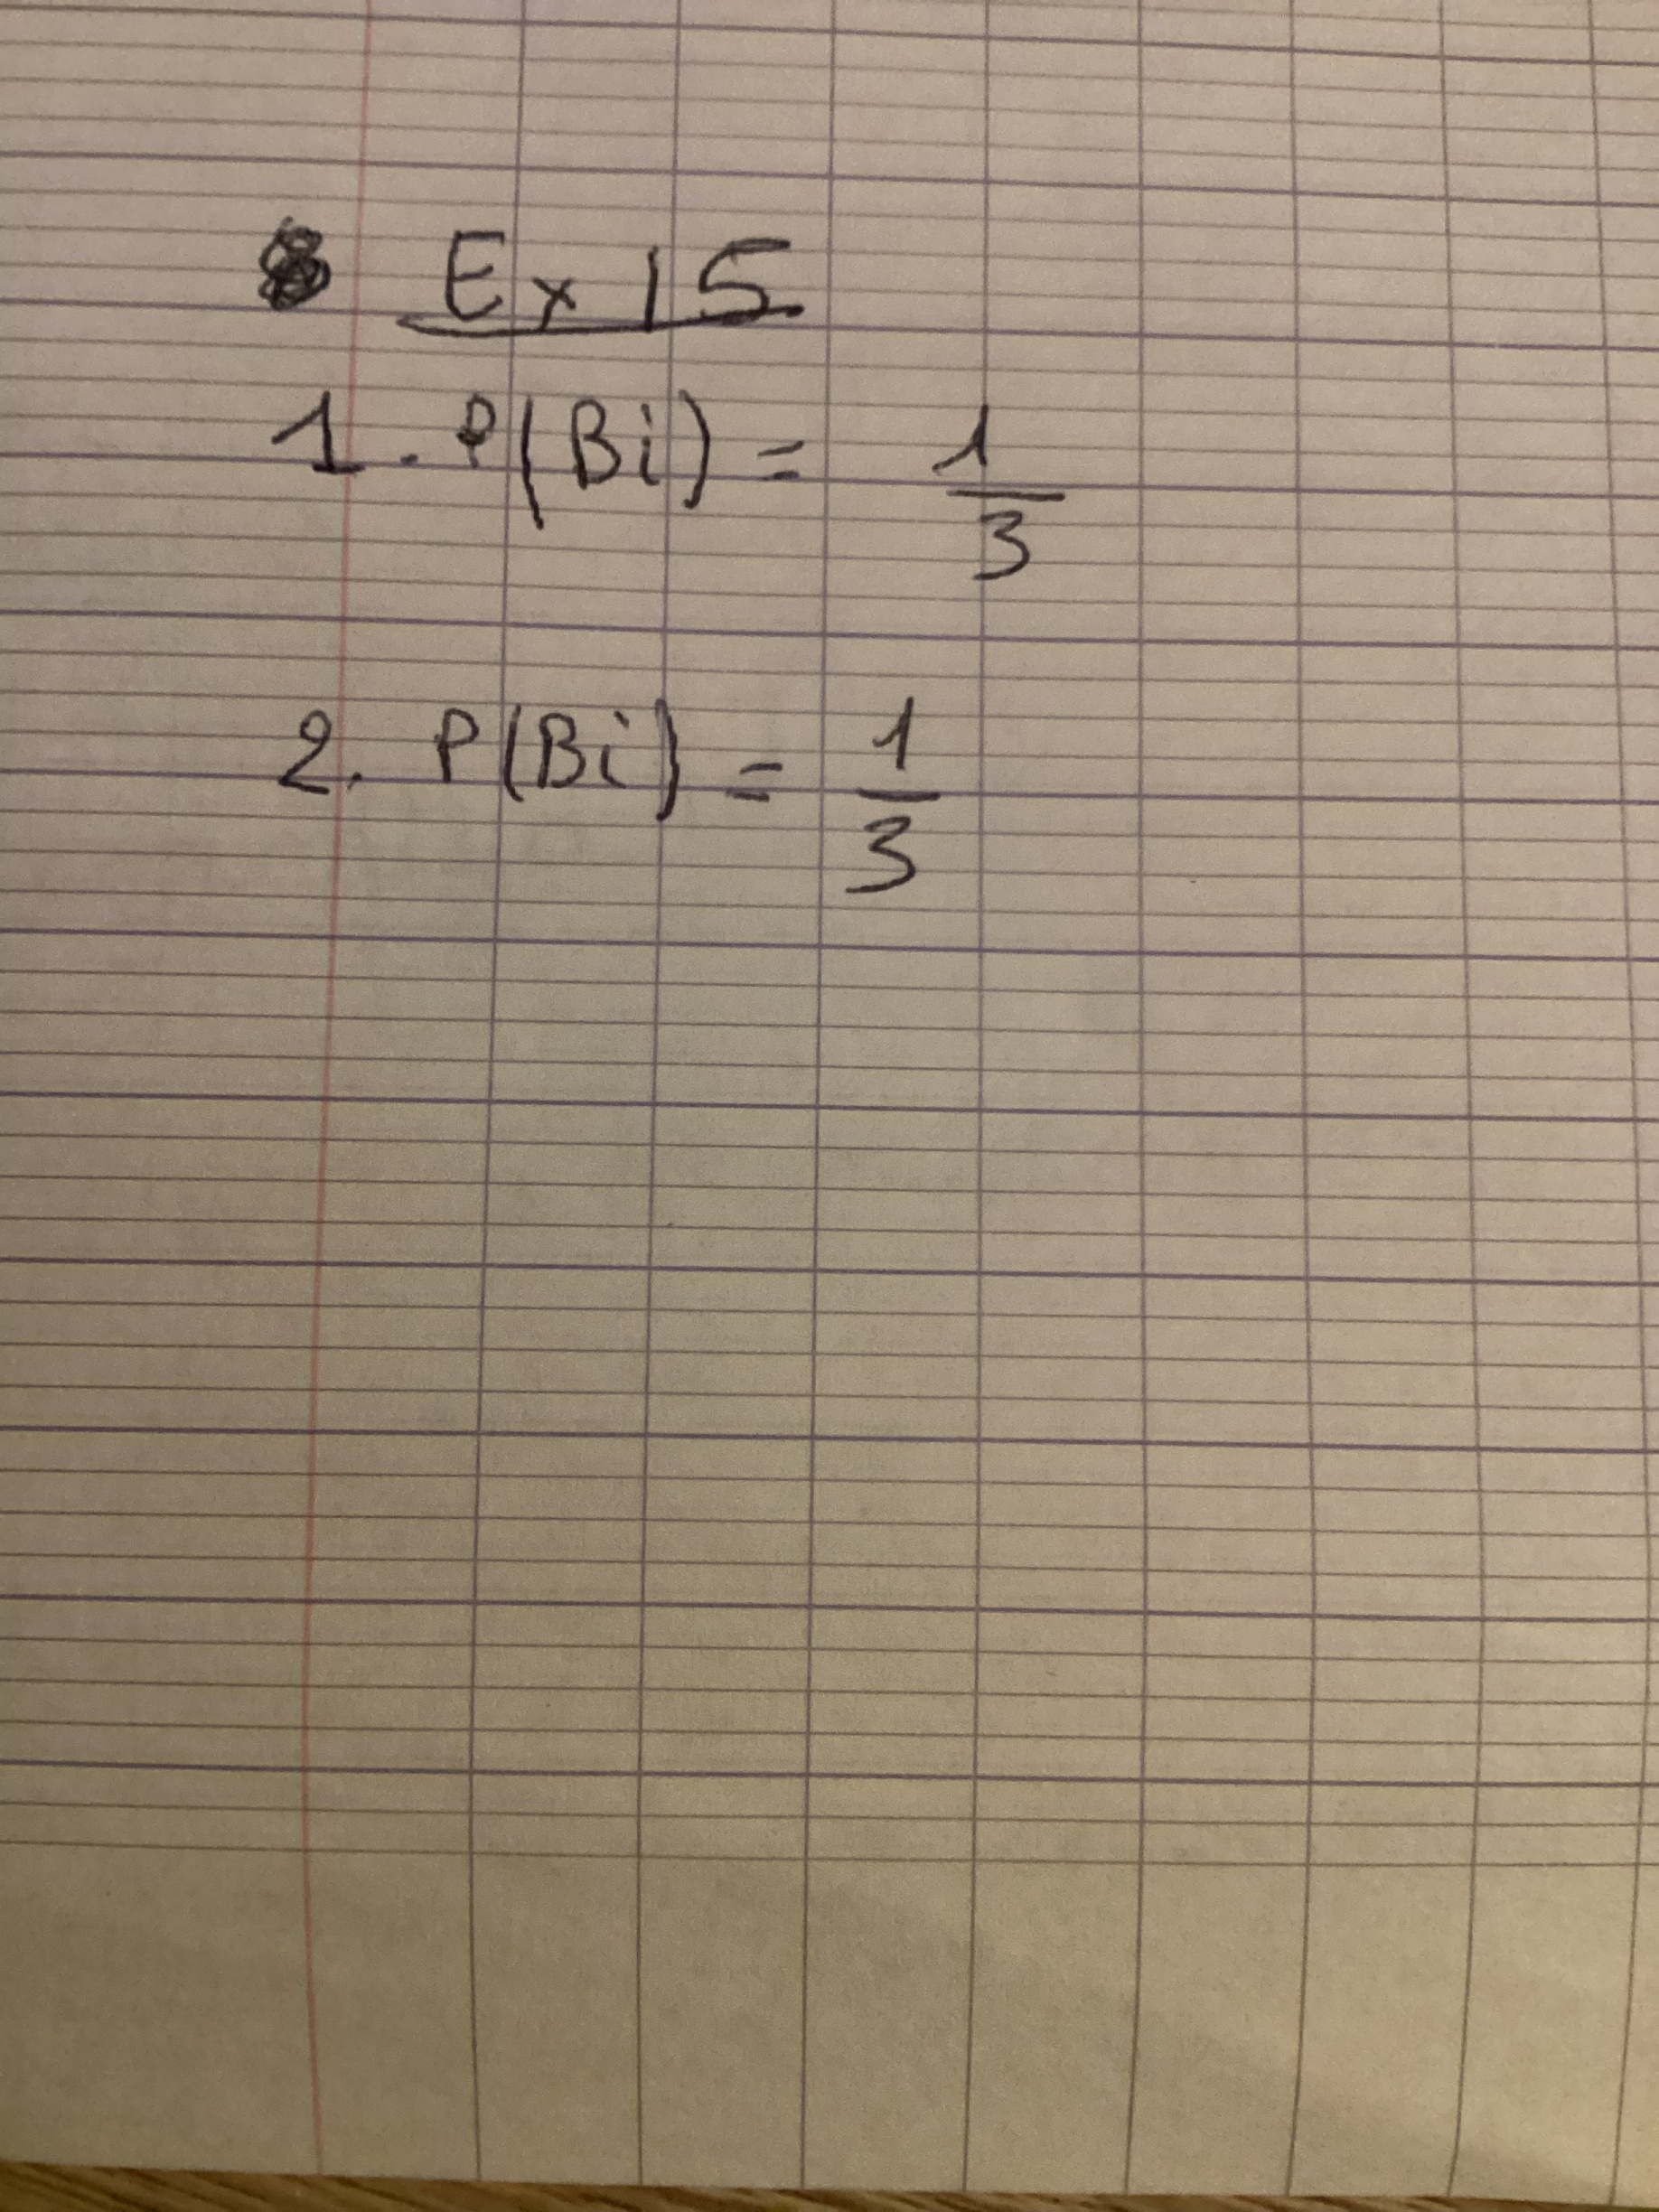 Ex 15
1. P(Bi) = 1/3
2. P(Bi) = 1/3